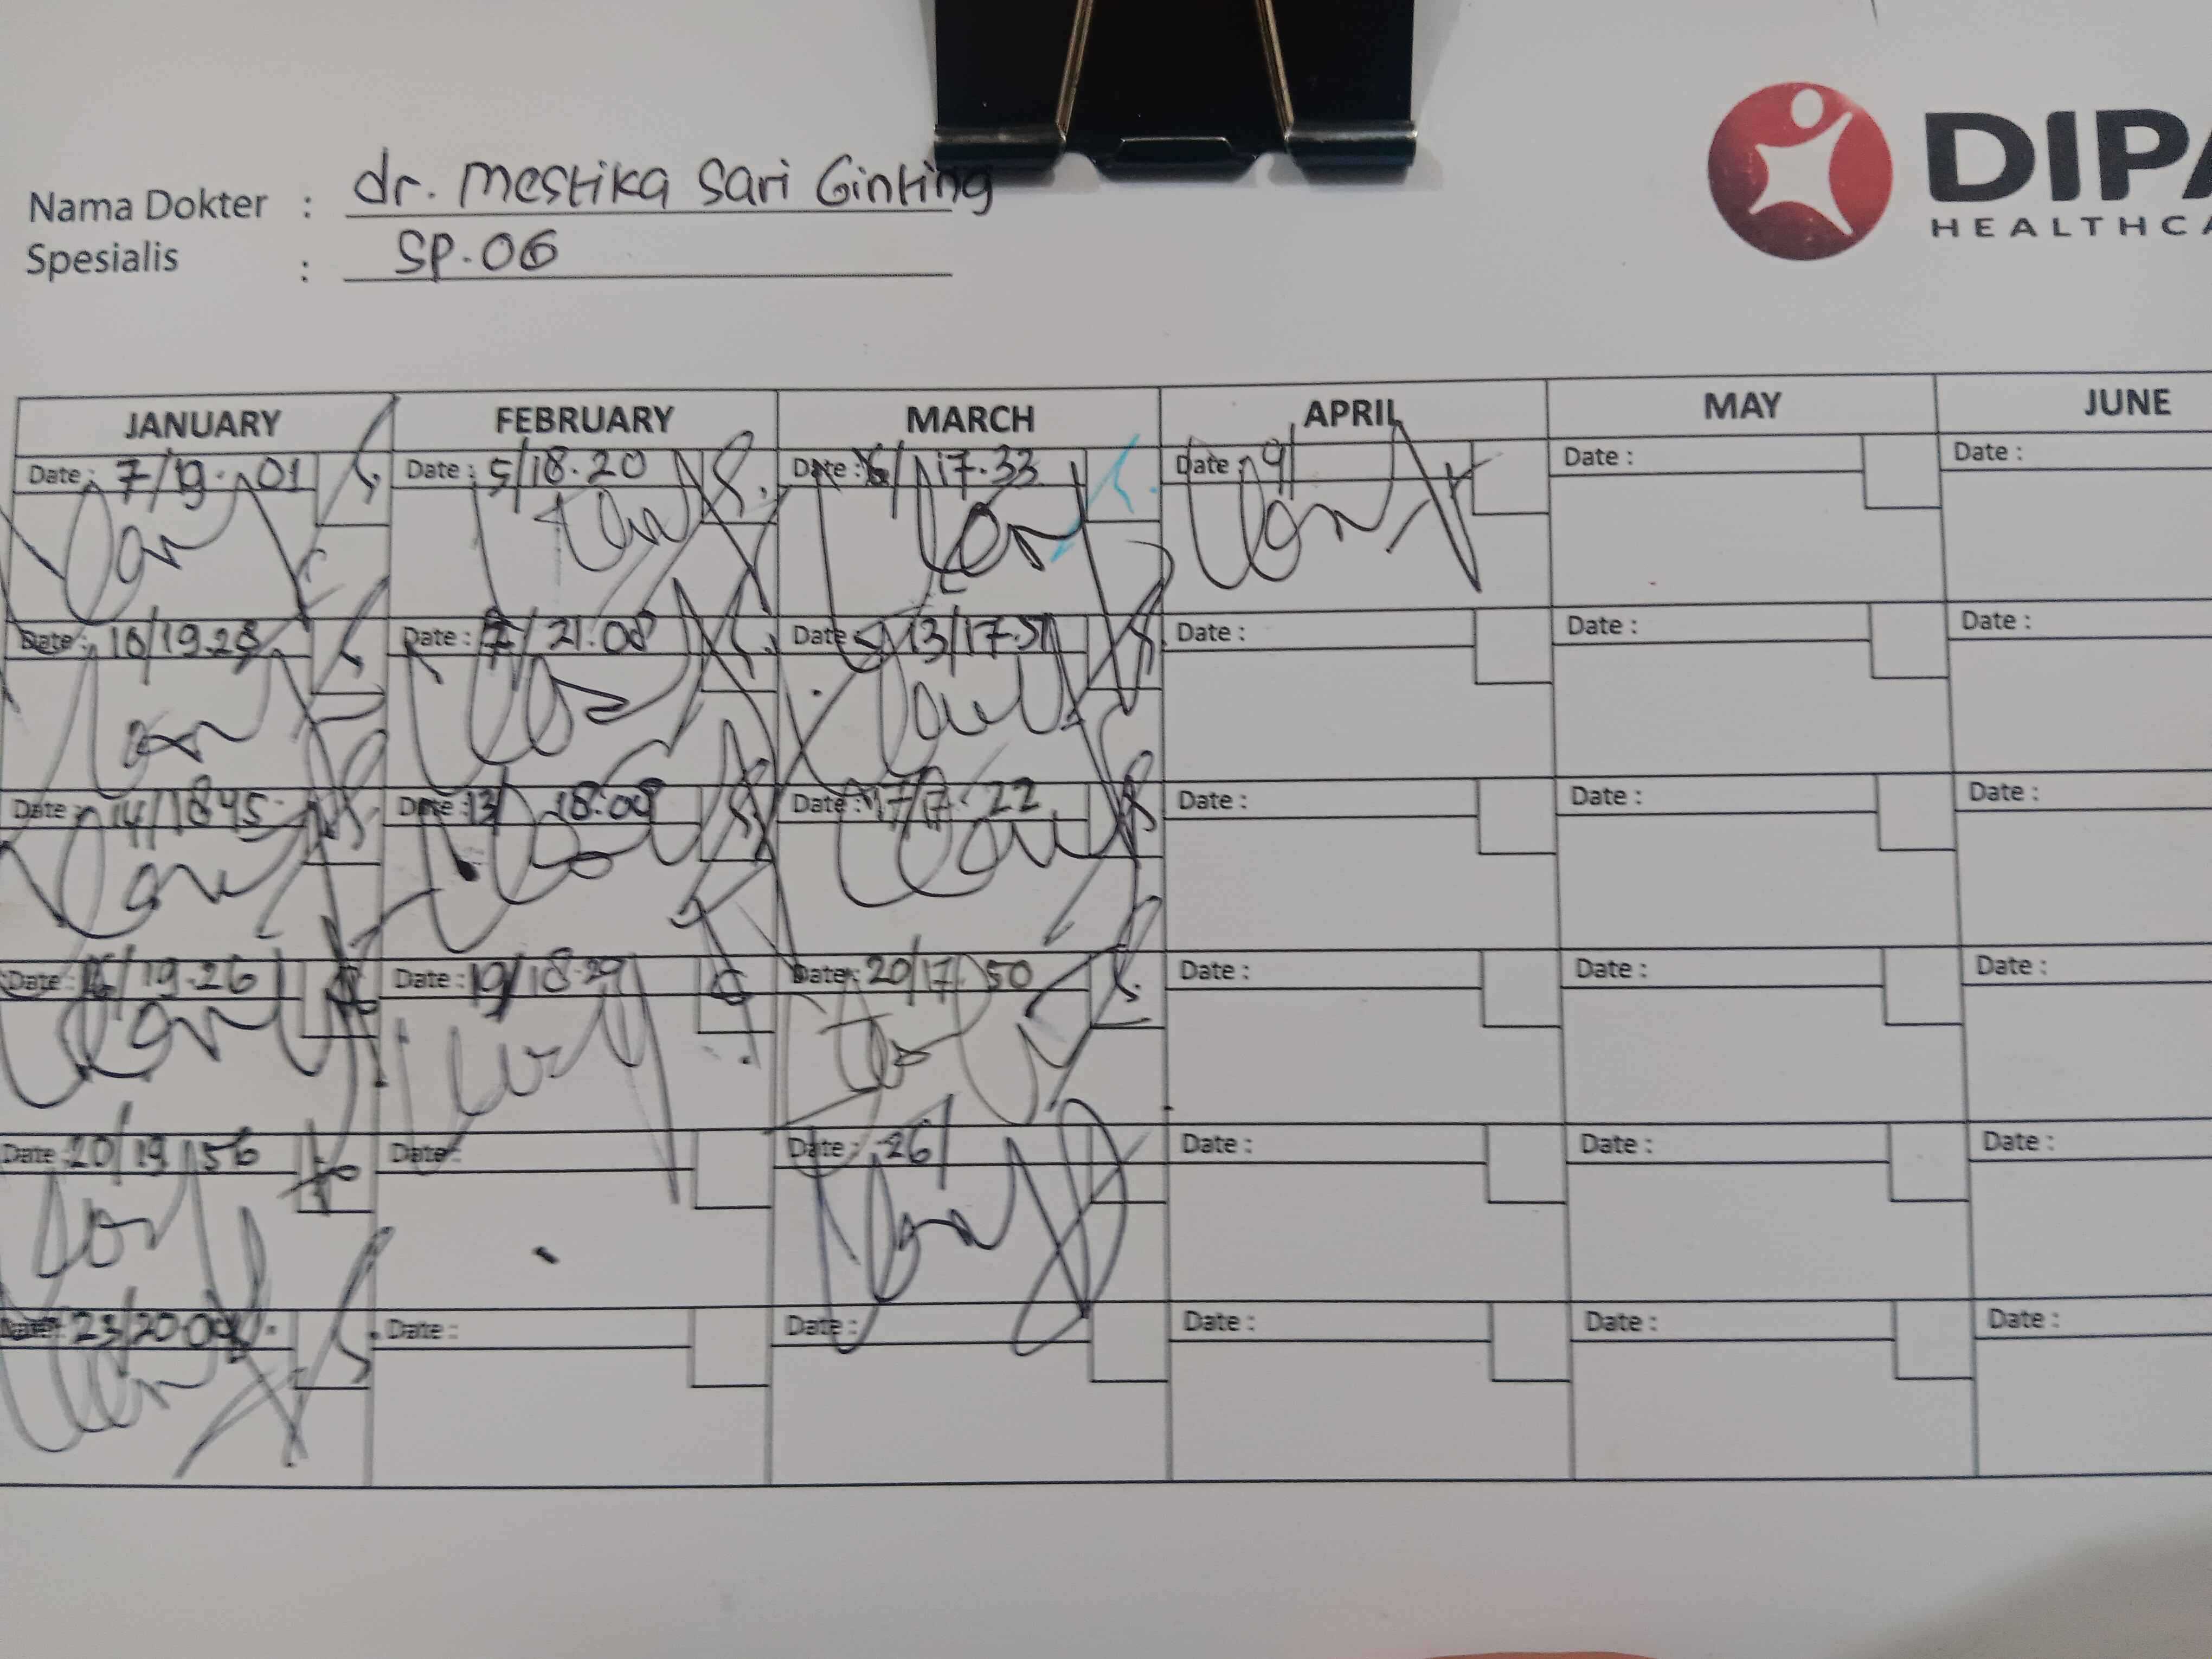 Nama Dokter : dr. Mestika Sari Ginting
Spesialis : SP.OG
DIPA
HEALTHCA
JANUARY FEBRUARY MARCH APRIL MAY JUNE
Date : 7/19. 01 Date : 5/18.20 Date : 6/17.33 Date : 9/ Date : Date :
Date : 10/19.28 Date : 7/21.08 Date : 13/17.51 Date : Date : Date :
Date : 14/18.45 Date : 13/18.08 Date : 17/17.22 Date : Date : Date :
Date : 16/19.26 Date : 19/18.29 Date : 20/17.50 Date : Date : Date :
Date : 20/19.56 Date : Date : 26/ Date : Date : Date :
Date : 23/20.09 Date : Date : Date : Date : Date :